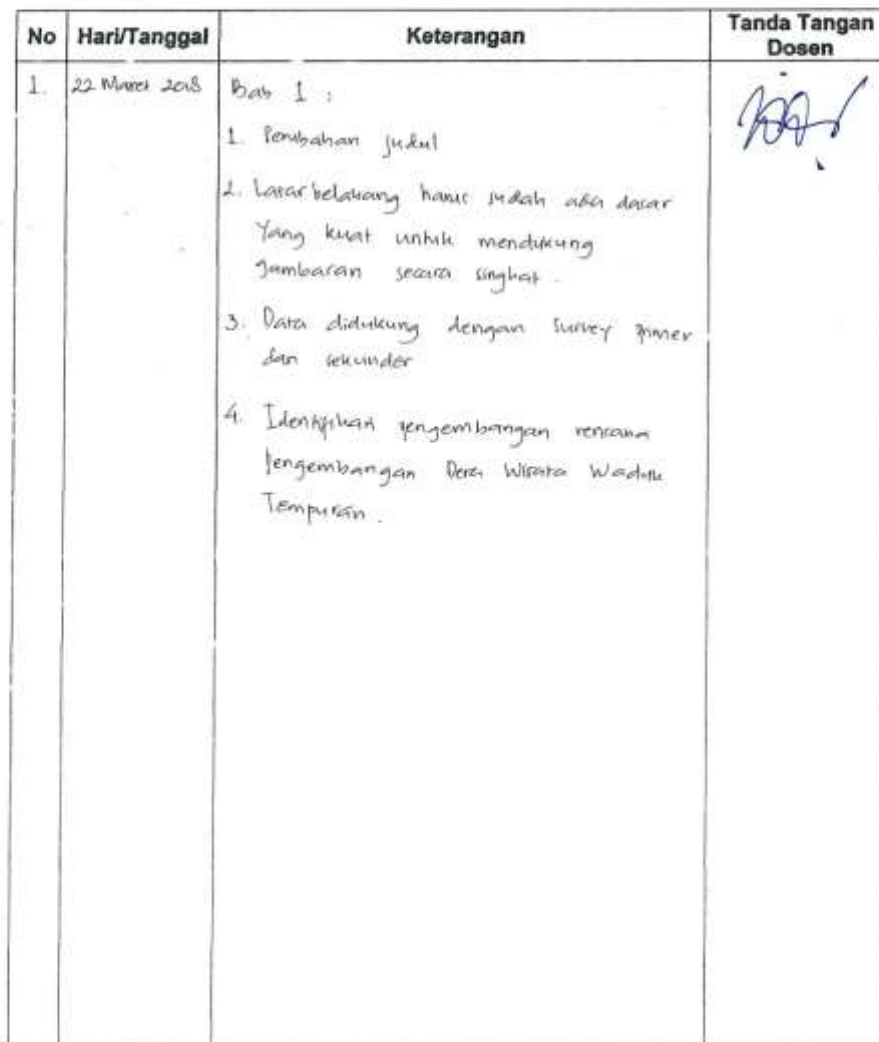 No Hari/Tanggal Keterangan Tanda Tangan Dosen
1. 22 Maret 2018 Bab 1 :
1. Perubahan judul
2. Latar belakang harus sudah ada dasar
yang kuat untuk mendukung
gambaran secara singkat.
3. Data didukung dengan survey primer
dan sekunder
4. Identifikasi pengembangan rencana
pengembangan Desa Wisata Waduk
Tempuran.